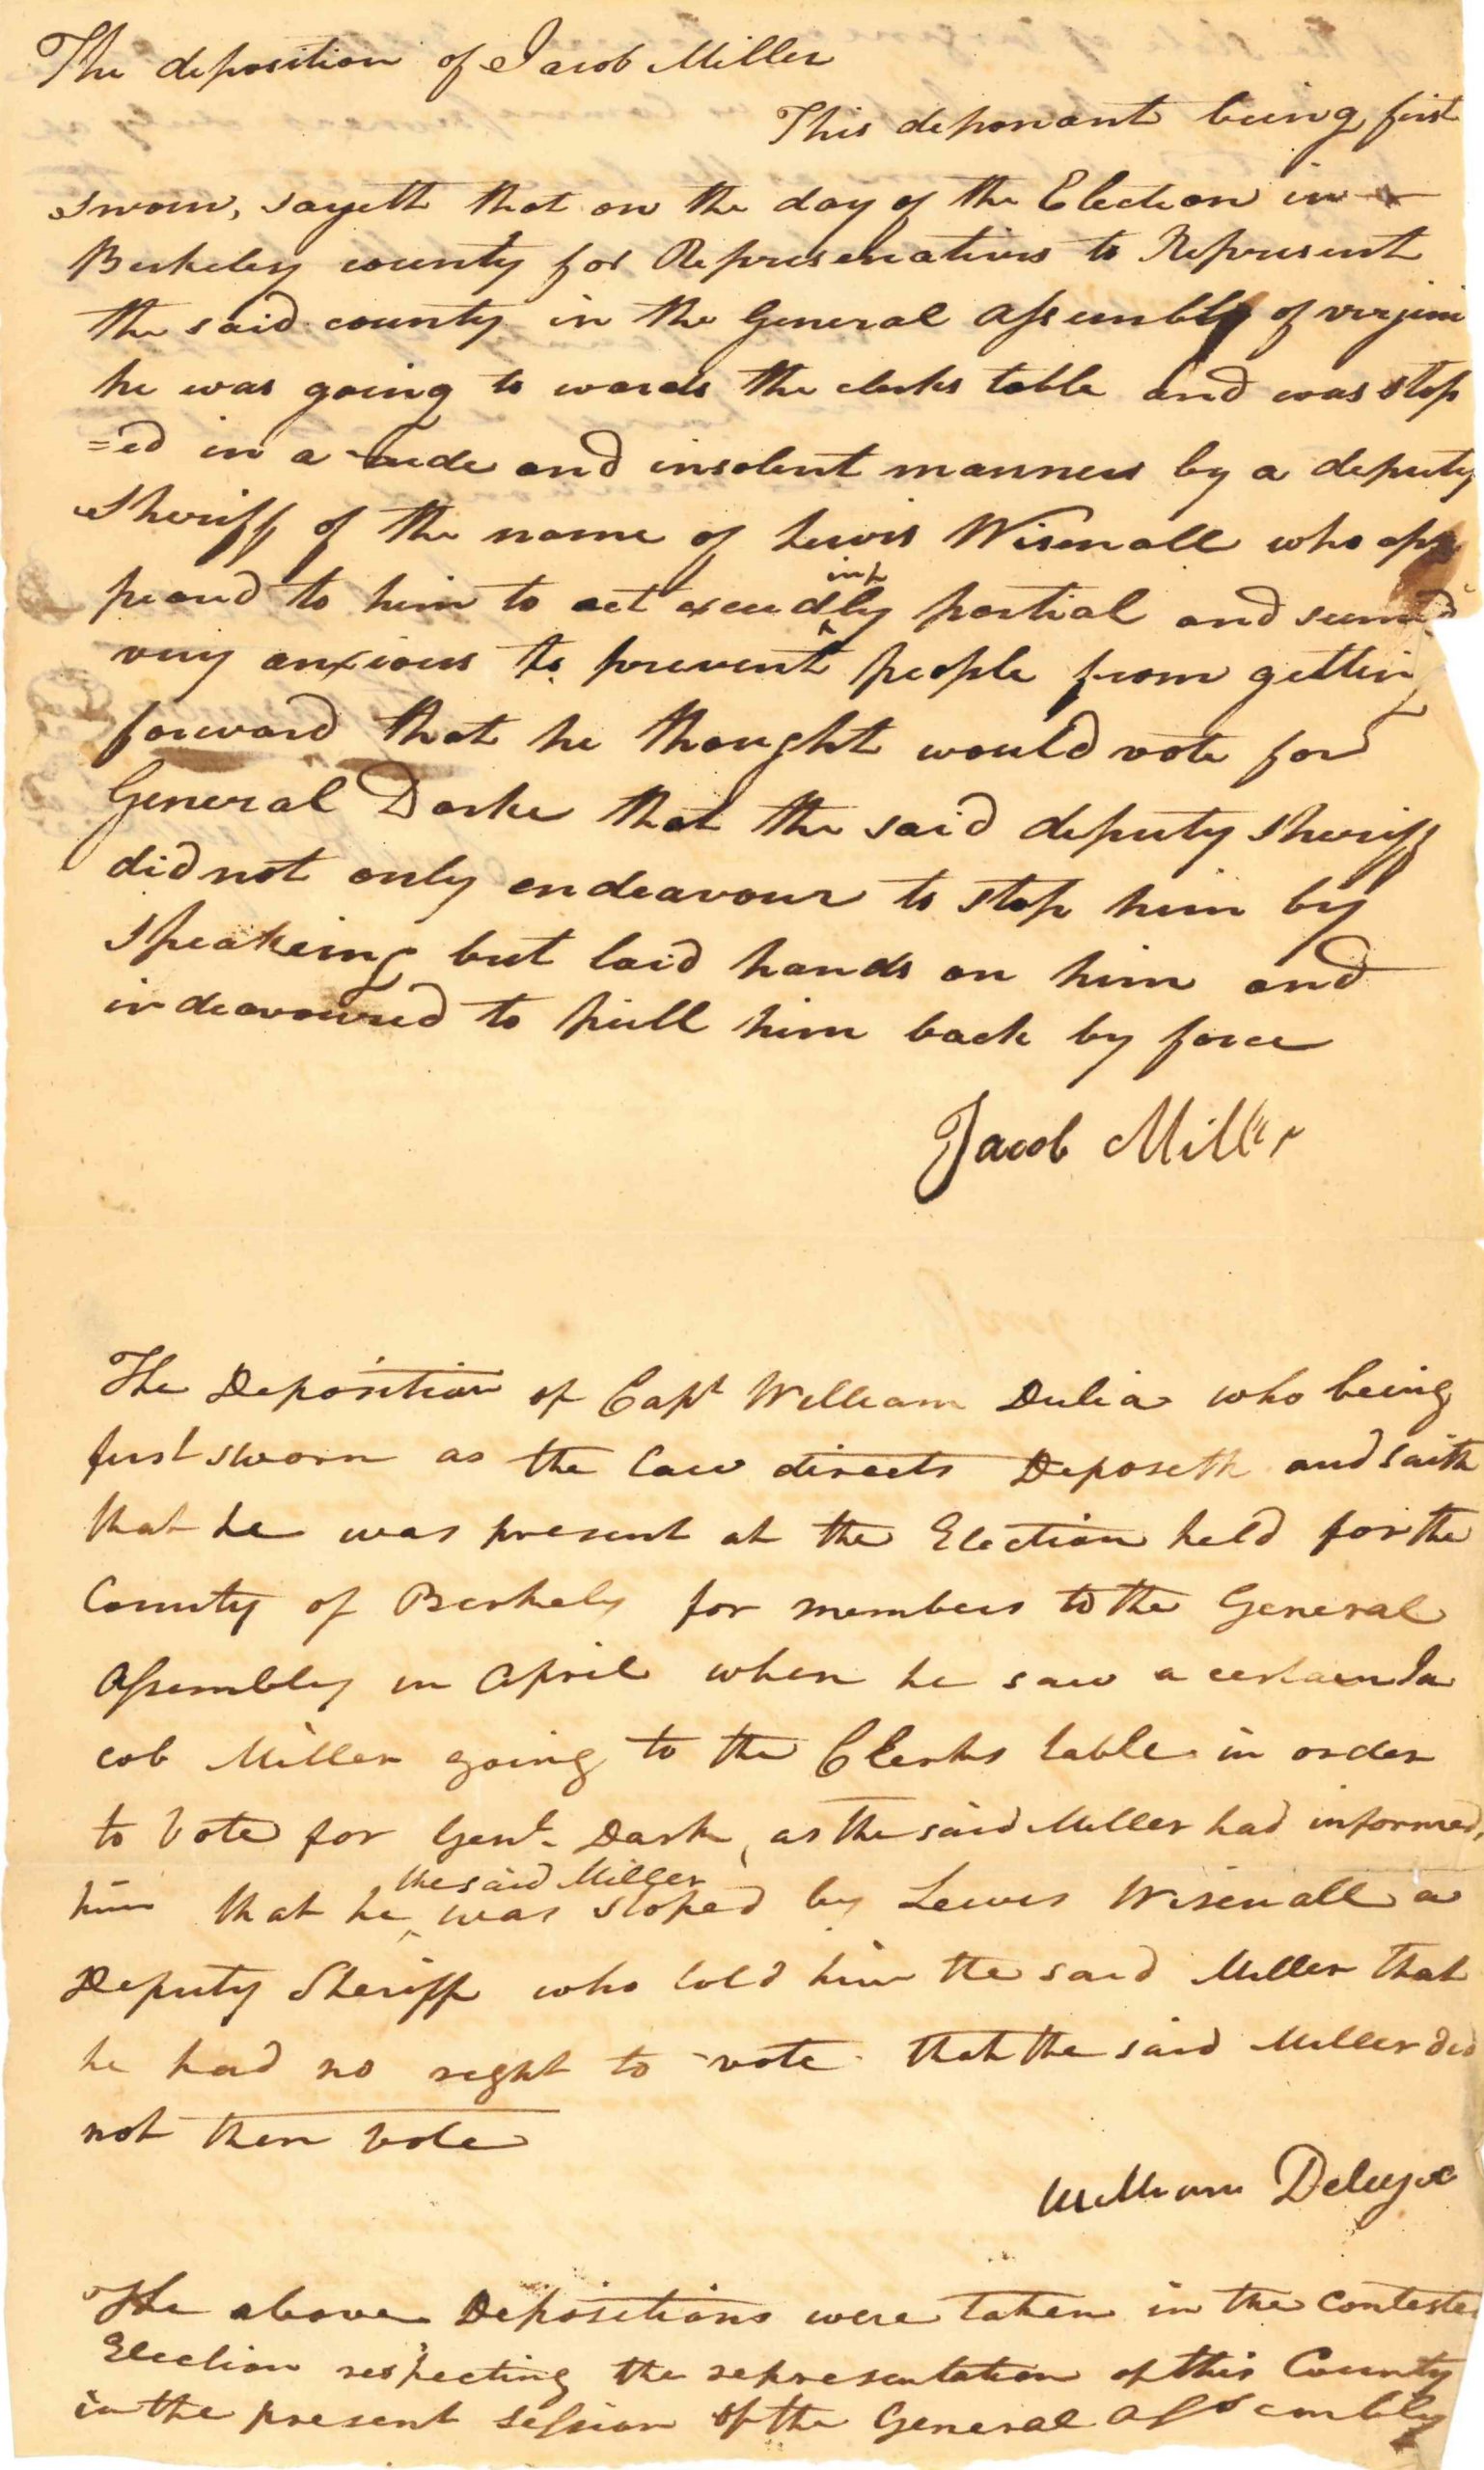 The deposition of Jacob Miller
This deponant being first
sworn, sayeth that on the day of the Election in
Berkeley county for Representatives to Represent
the said county in the General Assembly of virgini
he was going to wards the clerks table and was stop
=ed in a rude and insolent manner by a deputy
Sheriff of the name of Lewis Wisenall who ap
peard to him to act exceedly partial and seemd
ing
very anxious to prevent people from getting
forward that he thought would vote for
General Darke that the said deputy Sheriff
did not only endeavour to stop him by
speakeing but laid hands on him and
indeavoured to pull him back by force
Jacob Miller
The Deposition of Capt William Dulia who being
first sworn as the Law directs Deposeth and saith
that he was present at the Election held for the
County of Berkely for members to the General
Assembley in April when he saw a certain Ja
cob Miller going to the Clerks table in order
to Vote for Genl. Dark, as the said Miller had informed,
him that he the said Miller was stoped by Lewis Wisenall a
Deputy Sheriff who told him the said Miller that
he had no right to vote that the said Miller did
not then vote
William Deluje
The above Depositions were taken in the Conteste
Election respecting the representation of this County
in the present session of the General Assembly